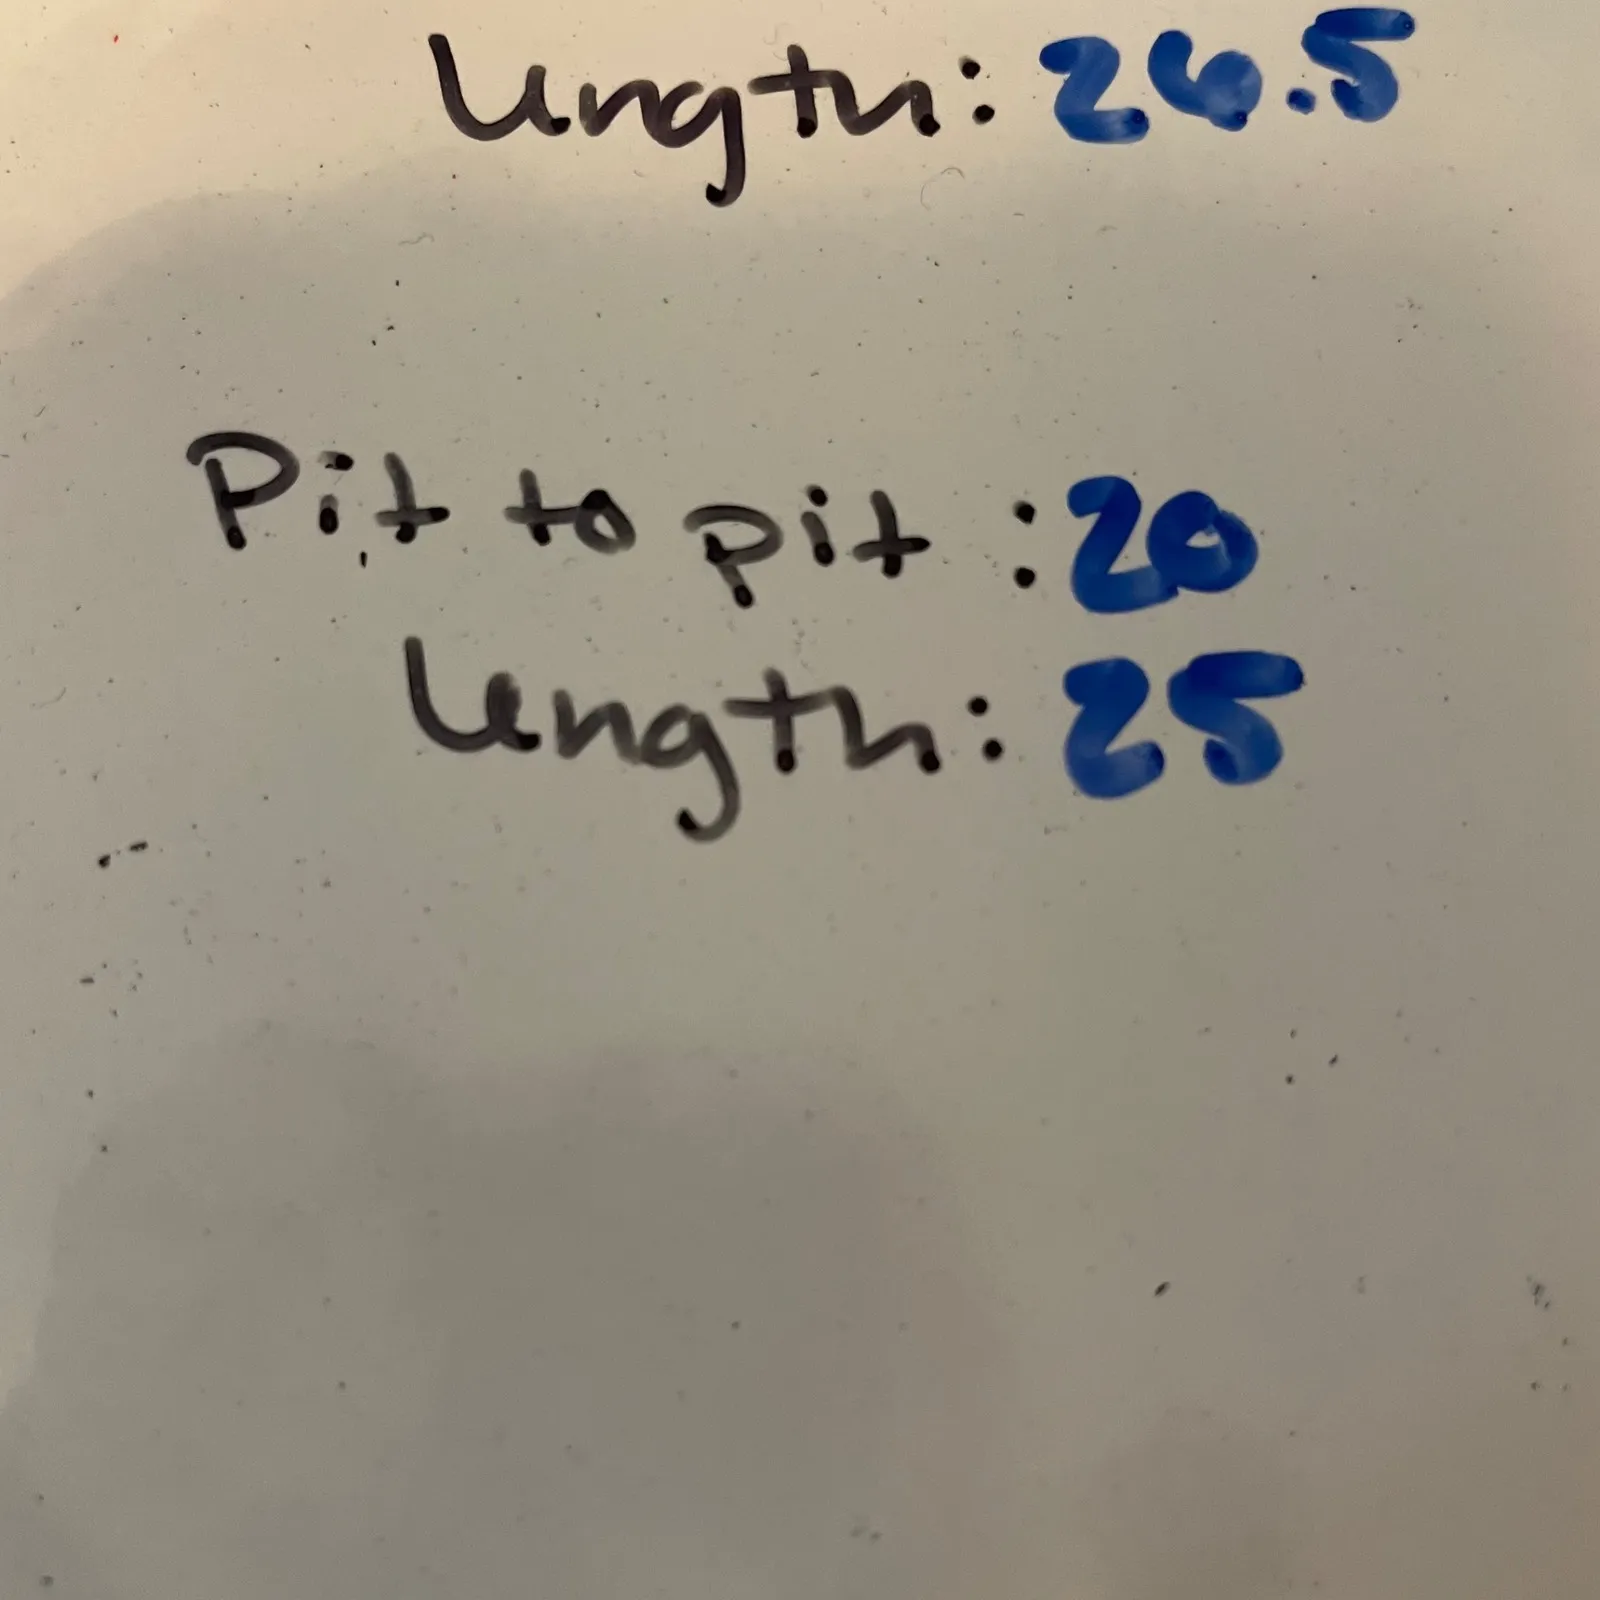 Length: 26.5
Pit to pit : 20
Length: 25